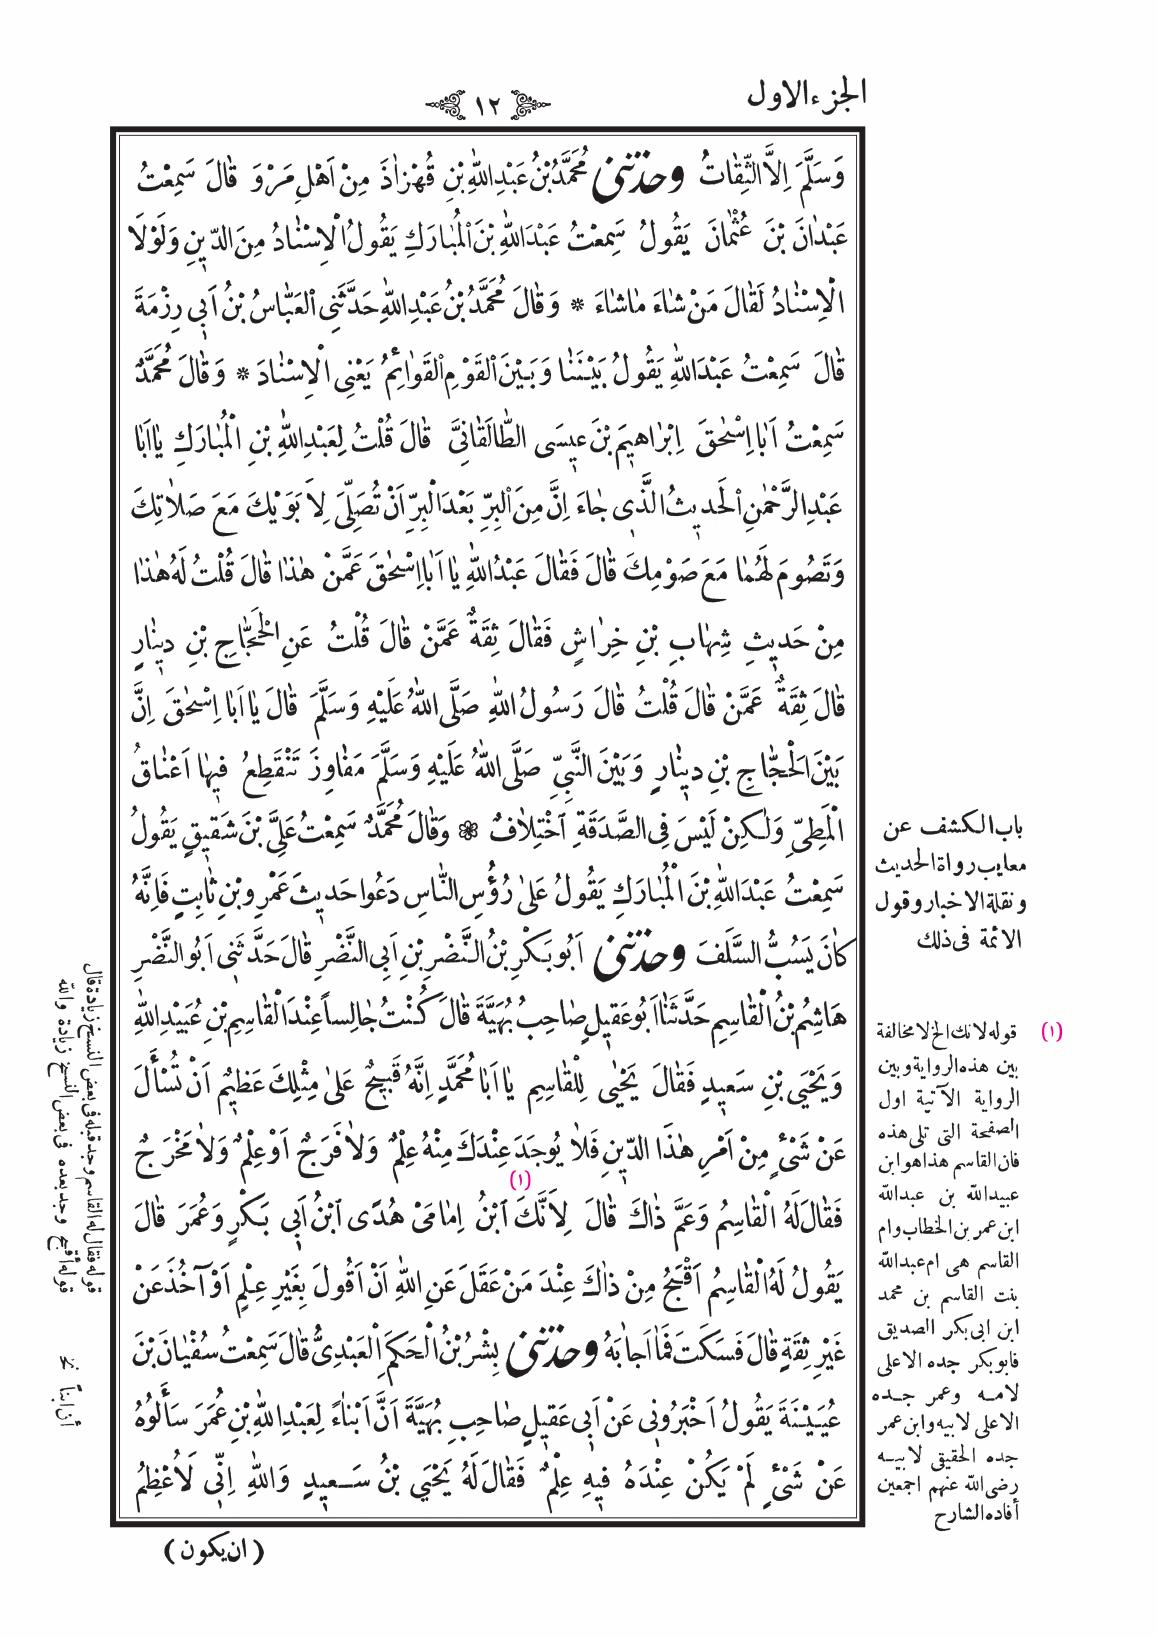 الجزء الاول
١٢
وَسَلَّمَ اِلَّا الثِّقٰاتُ وحدثنى مُحَمَّدُ بْنُ عَبْدِاللّٰهِ بْنِ قُهْزٰاذَ مِنْ اَهْلِ مَرْوَ قٰالَ سَمِعْتُ
عَبْدٰانَ بْنَ عُثْمٰانَ يَقُولُ سَمِعْتُ عَبْدَاللّٰهِ بْنَ الْمُبٰارَكِ يَقُولُ الْاِسْنٰادُ مِنَ الدّٖينِ وَلَوْلَا
الْاِسْنٰادُ لَقٰالَ مَنْ شٰاءَ مٰاشٰاءَ * وَقٰالَ مُحَمَّدُ بْنُ عَبْدِاللّٰهِ حَدَّثَنِى الْعَبّٰاسُ بْنُ اَبٖى رِزْمَةَ
قٰالَ سَمِعْتُ عَبْدَاللّٰهِ يَقُولُ بَيْنَنٰا وَبَيْنَ الْقَوْمِ الْقَوٰائِمُ يَعْنِى الْاِسْنٰادَ * وَقٰالَ مُحَمَّدٌ
سَمِعْتُ اَبٰا اِسْحٰقَ اِبْرٰاهٖيمَ بْنَ عٖيسَى الطّٰالَقٰانِىَّ قٰالَ قُلْتُ لِعَبْدِاللّٰهِ بْنِ الْمُبٰارَكِ يٰا اَبٰا
عَبْدِ الرَّحْمٰنِ الْحَدٖيثُ الَّذٖى جٰاءَ اِنَّ مِنَ الْبِرِّ بَعْدَ الْبِرِّ اَنْ تُصَلِّىَ لِاَبَوَيْكَ مَعَ صَلَاتِكَ
وَتَصُومَ لَهُمٰا مَعَ صَوْمِكَ قٰالَ فَقٰالَ عَبْدُاللّٰهِ يٰا اَبٰا اِسْحٰقَ عَمَّنْ هٰذٰا قٰالَ قُلْتُ لَهُ هٰذٰا
مِنْ حَدٖيثِ شِهٰابِ بْنِ خِرٰاشٍ فَقٰالَ ثِقَةٌ عَمَّنْ قٰالَ قُلْتُ عَنِ الْحَجّٰاجِ بْنِ دٖينٰارٍ
قٰالَ ثِقَةٌ عَمَّنْ قٰالَ قُلْتُ قٰالَ رَسُولُ اللّٰهِ صَلَّى اللّٰهُ عَلَيْهِ وَسَلَّمَ قٰالَ يٰا اَبٰا اِسْحٰقَ اِنَّ
بَيْنَ الْحَجّٰاجِ بْنِ دٖينٰارٍ وَبَيْنَ النَّبِىِّ صَلَّى اللّٰهُ عَلَيْهِ وَسَلَّمَ مَفٰاوِزَ تَنْقَطِعُ فٖيهٰا اَعْنٰاقُ
الْمَطِىِّ وَلٰكِنْ لَيْسَ فِى الصَّدَقَةِ اخْتِلَافٌ ❀ وَقٰالَ مُحَمَّدٌ سَمِعْتُ عَلِىَّ بْنَ شَقٖيقٍ يَقُولُ
سَمِعْتُ عَبْدَاللّٰهِ بْنَ الْمُبٰارَكِ يَقُولُ عَلىٰ رُؤُسِ النّٰاسِ دَعُوا حَدٖيثَ عَمْرِو بْنِ ثٰابِتٍ فَاِنَّهُ
كٰانَ يَسُبُّ السَّلَفَ وحدثنى اَبُو بَكْرِ بْنُ النَّضْرِ بْنِ اَبِى النَّضْرِ قٰالَ حَدَّثَنِى اَبُو النَّضْرِ
هٰاشِمُ بْنُ الْقٰاسِمِ حَدَّثَنٰا اَبُو عَقٖيلٍ صٰاحِبُ بُهَيَّةَ قٰالَ كُنْتُ جٰالِساً عِنْدَ الْقٰاسِمِ بْنِ عُبَيْدِاللّٰهِ
وَيَحْيَى بْنِ سَعٖيدٍ فَقٰالَ يَحْيٰى لِلْقٰاسِمِ يٰا اَبٰا مُحَمَّدٍ اِنَّهُ قَبٖيحٌ عَلىٰ مِثْلِكَ عَظٖيمٌ اَنْ تُسْأَلَ
عَنْ شَىْءٍ مِنْ اَمْرِ هٰذَا الدّٖينِ فَلَا يُوجَدَ عِنْدَكَ مِنْهُ عِلْمٌ وَلَا فَرَجٌ اَوْ عِلْمٌ وَلَا مَخْرَجٌ
فَقٰالَ لَهُ الْقٰاسِمُ وَعَمَّ ذٰاكَ قٰالَ لِاَنَّكَ (١) ابْنُ اِمٰامَىْ هُدًى ابْنُ اَبٖى بَكْرٍ وَعُمَرَ قٰالَ
يَقُولُ لَهُ الْقٰاسِمُ اَقْبَحُ مِنْ ذٰاكَ عِنْدَ مَنْ عَقَلَ عَنِ اللّٰهِ اَنْ اَقُولَ بِغَيْرِ عِلْمٍ اَوْ آخُذَ عَنْ
غَيْرِ ثِقَةٍ قٰالَ فَسَكَتَ فَمٰا اَجٰابَهُ وحدثنى بِشْرُ بْنُ الْحَكَمِ الْعَبْدِىُّ قٰالَ سَمِعْتُ سُفْيٰانَ بْنَ
عُيَيْنَةَ يَقُولُ اَخْبَرُونٖى عَنْ اَبٖى عَقٖيلٍ صٰاحِبِ بُهَيَّةَ اَنَّ اَبْنٰاءً لِعَبْدِاللّٰهِ بْنِ عُمَرَ سَأَلُوهُ
عَنْ شَىْءٍ لَمْ يَكُنْ عِنْدَهُ فٖيهِ عِلْمٌ فَقٰالَ لَهُ يَحْيَى بْنُ سَعٖيدٍ وَاللّٰهِ اِنّٖى لَاُعْظِمُ
( ان يكون )
باب الكشف عن
معايب رواة الحديث
ونقلة الاخبار وقول
الائمة فى ذلك
(١) قوله لانك الخ لا مخالفة
بين هذه الرواية وبين
الرواية الآتية اول
الصفحة التى تلى هذه
فان القاسم هذا هو ابن
عبيدالله بن عبدالله
ابن عمر بن الخطاب وام
القاسم هى ام عبدالله
بنت القاسم بن محمد
ابن ابى بكر الصديق
فابو بكر جده الاعلى
لامه وعمر جده
الاعلى لابيه وابن عمر
جده الحقيقى لابيه
رضى الله عنهم اجمعين
أفاده الشارح
قوله فقال له القاسم وجد قبله فى بعض النسخ زيادة قال
قوله أقبح وجد بعده فى بعض النسخ زيادة والله
أن ابناً نخ